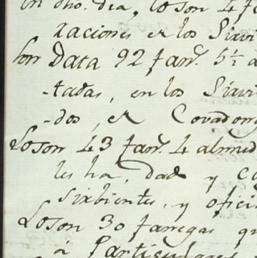 dho. dia, lo son 4 f
raciones e los Sirvi
Son Data 92 fan.s 5½ a
tadas, en los Sirvi
dos, e Covadong
Lo son 43 fan.s 4 almed
les ha, dad y Co
sirbientes, y ofici
Lo son 30 fanegas qu
à Particulares